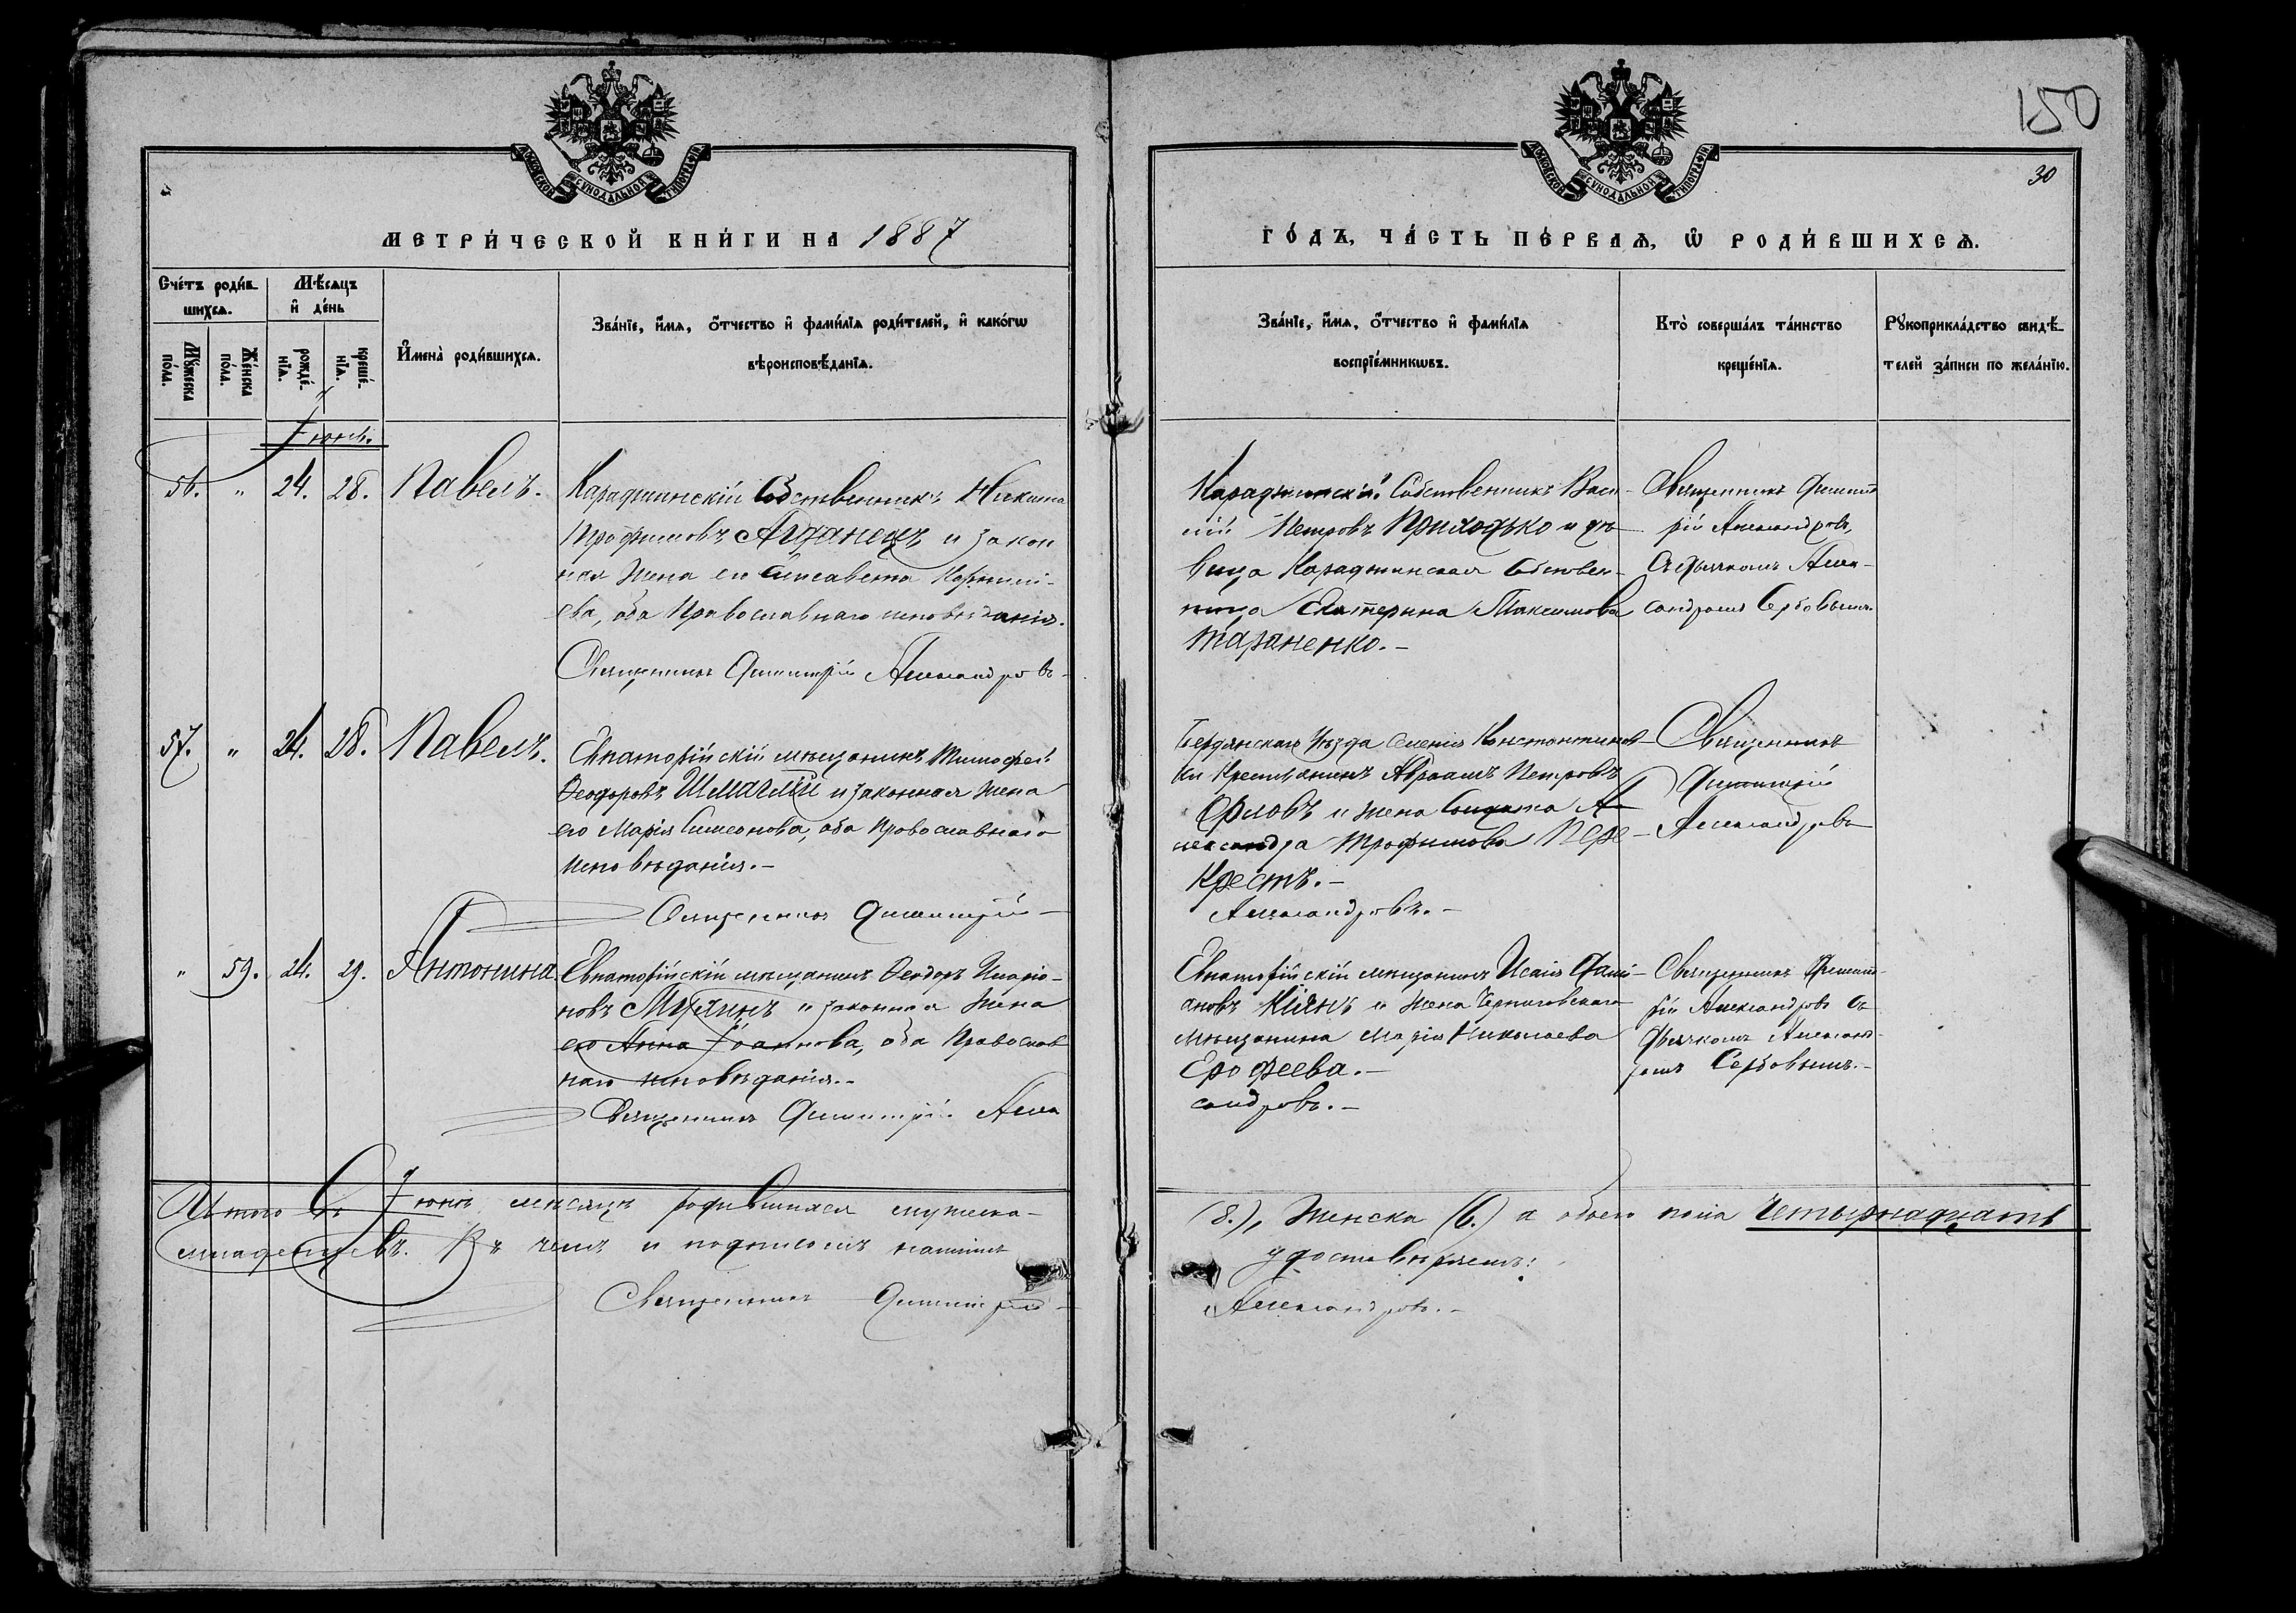 150
30
МОСКОВСКОЙ СУНОДАЛЬНОЙ ТИПОГРАФІИ
МОСКОВСКОЙ СУНОДАЛЬНОЙ ТИПОГРАФІИ
МЕТРИ́ЧЕСКОЙ КНИ́ГИ НА 1887
ГО́ДЪ, ЧА́СТЬ ПЕ́РВАѦ, Ѡ҆ РОДИ́ВШИХСѦ.
Сче́тъ роди́в-
шихсѧ.
Мꙋ́жеска по́ла.
Же́нска по́ла.
Мѣ́сѧцъ
и҆ де́нь
рожде́-
нїѧ.
креще́-
нїѧ.
И҆мена̀ роди́вшихсѧ.
Зва́нїе, и҆́мѧ, ѻ҆́тчество и҆ фами́лїѧ роди́телей, и҆ како́гѡ
вѣроисповѣ́данїѧ.
Зва́нїе, и҆́мѧ, ѻ҆́тчество и҆ фами́лїѧ
воспрїе́мникѡвъ.
Кто̀ соверша́лъ та́инство
креще́нїѧ.
Рꙋкоприкла́дство свидѣ́-
телей за́писи по жела́нїю.
Іюнь.
56. " 24. 28. Павелъ.
Караджинскій Собственникъ Никита
Трофимовъ и закон
ная жена его Елисавета
ева, оба Православнаго исповѣданія.
Священникъ Димитрій Александровъ
Караджинскій Собственникъ Васи-
лій Петровъ Приходько и дѣ
вица Караджинская Собствен-
ница Екатерина Максимова
Тараненко.-
Священникъ Димит
рій Александровъ,
Съ дьячкомъ Алек-
сандромъ Сербовымъ.
57. " 24. 28. Павелъ.
Евпаторійскій мѣщанинъ Тимофей
Ѳеодоровъ и законная жена
его Марія Симеонова, оба Православнаго
исповѣданія.-
Священникъ Димитрій-
Бердянскаго Уѣзда селенія Константинов-
ки Крестьянинъ Авраамъ Петровъ
Орловъ и жена Солдата Ал-
лександра Трофимова Пере-
Крестъ.-
Александровъ.-
Священникъ
Димитрій
Александровъ
" 59. 24. 29. Антонина
Евпаторійскій мѣщанинъ Ѳеодоръ Иларіо-
новъ и законная жена
его Анна Іоаннова, оба Православ
наго исповѣданія.-
Священникъ Димитрій Алек
Евпаторійскій мѣщанинъ Исаія Дамі-
ановъ Кіянъ и жена Черниговскаго
мѣщанина Марія Николаева
Ерофеева.-
сандровъ.-
Священникъ Димит-
рій Александровъ съ
дьячкомъ Александ-
ромъ Сербовымъ.-
Итого въ Іюнѣ мѣсяцѣ родившихся мужеска-
(8.), женска (6.) а обоего пола Четырнадцать
младенцевъ. Въ чемъ и подписомъ нашимъ
удостовѣряемъ:
Священникъ Димитрій-
Александровъ.-